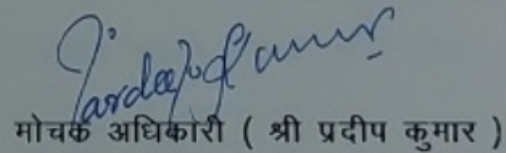 Pardeep Kumar
मोचक अधिकारी ( श्री प्रदीप कुमार )